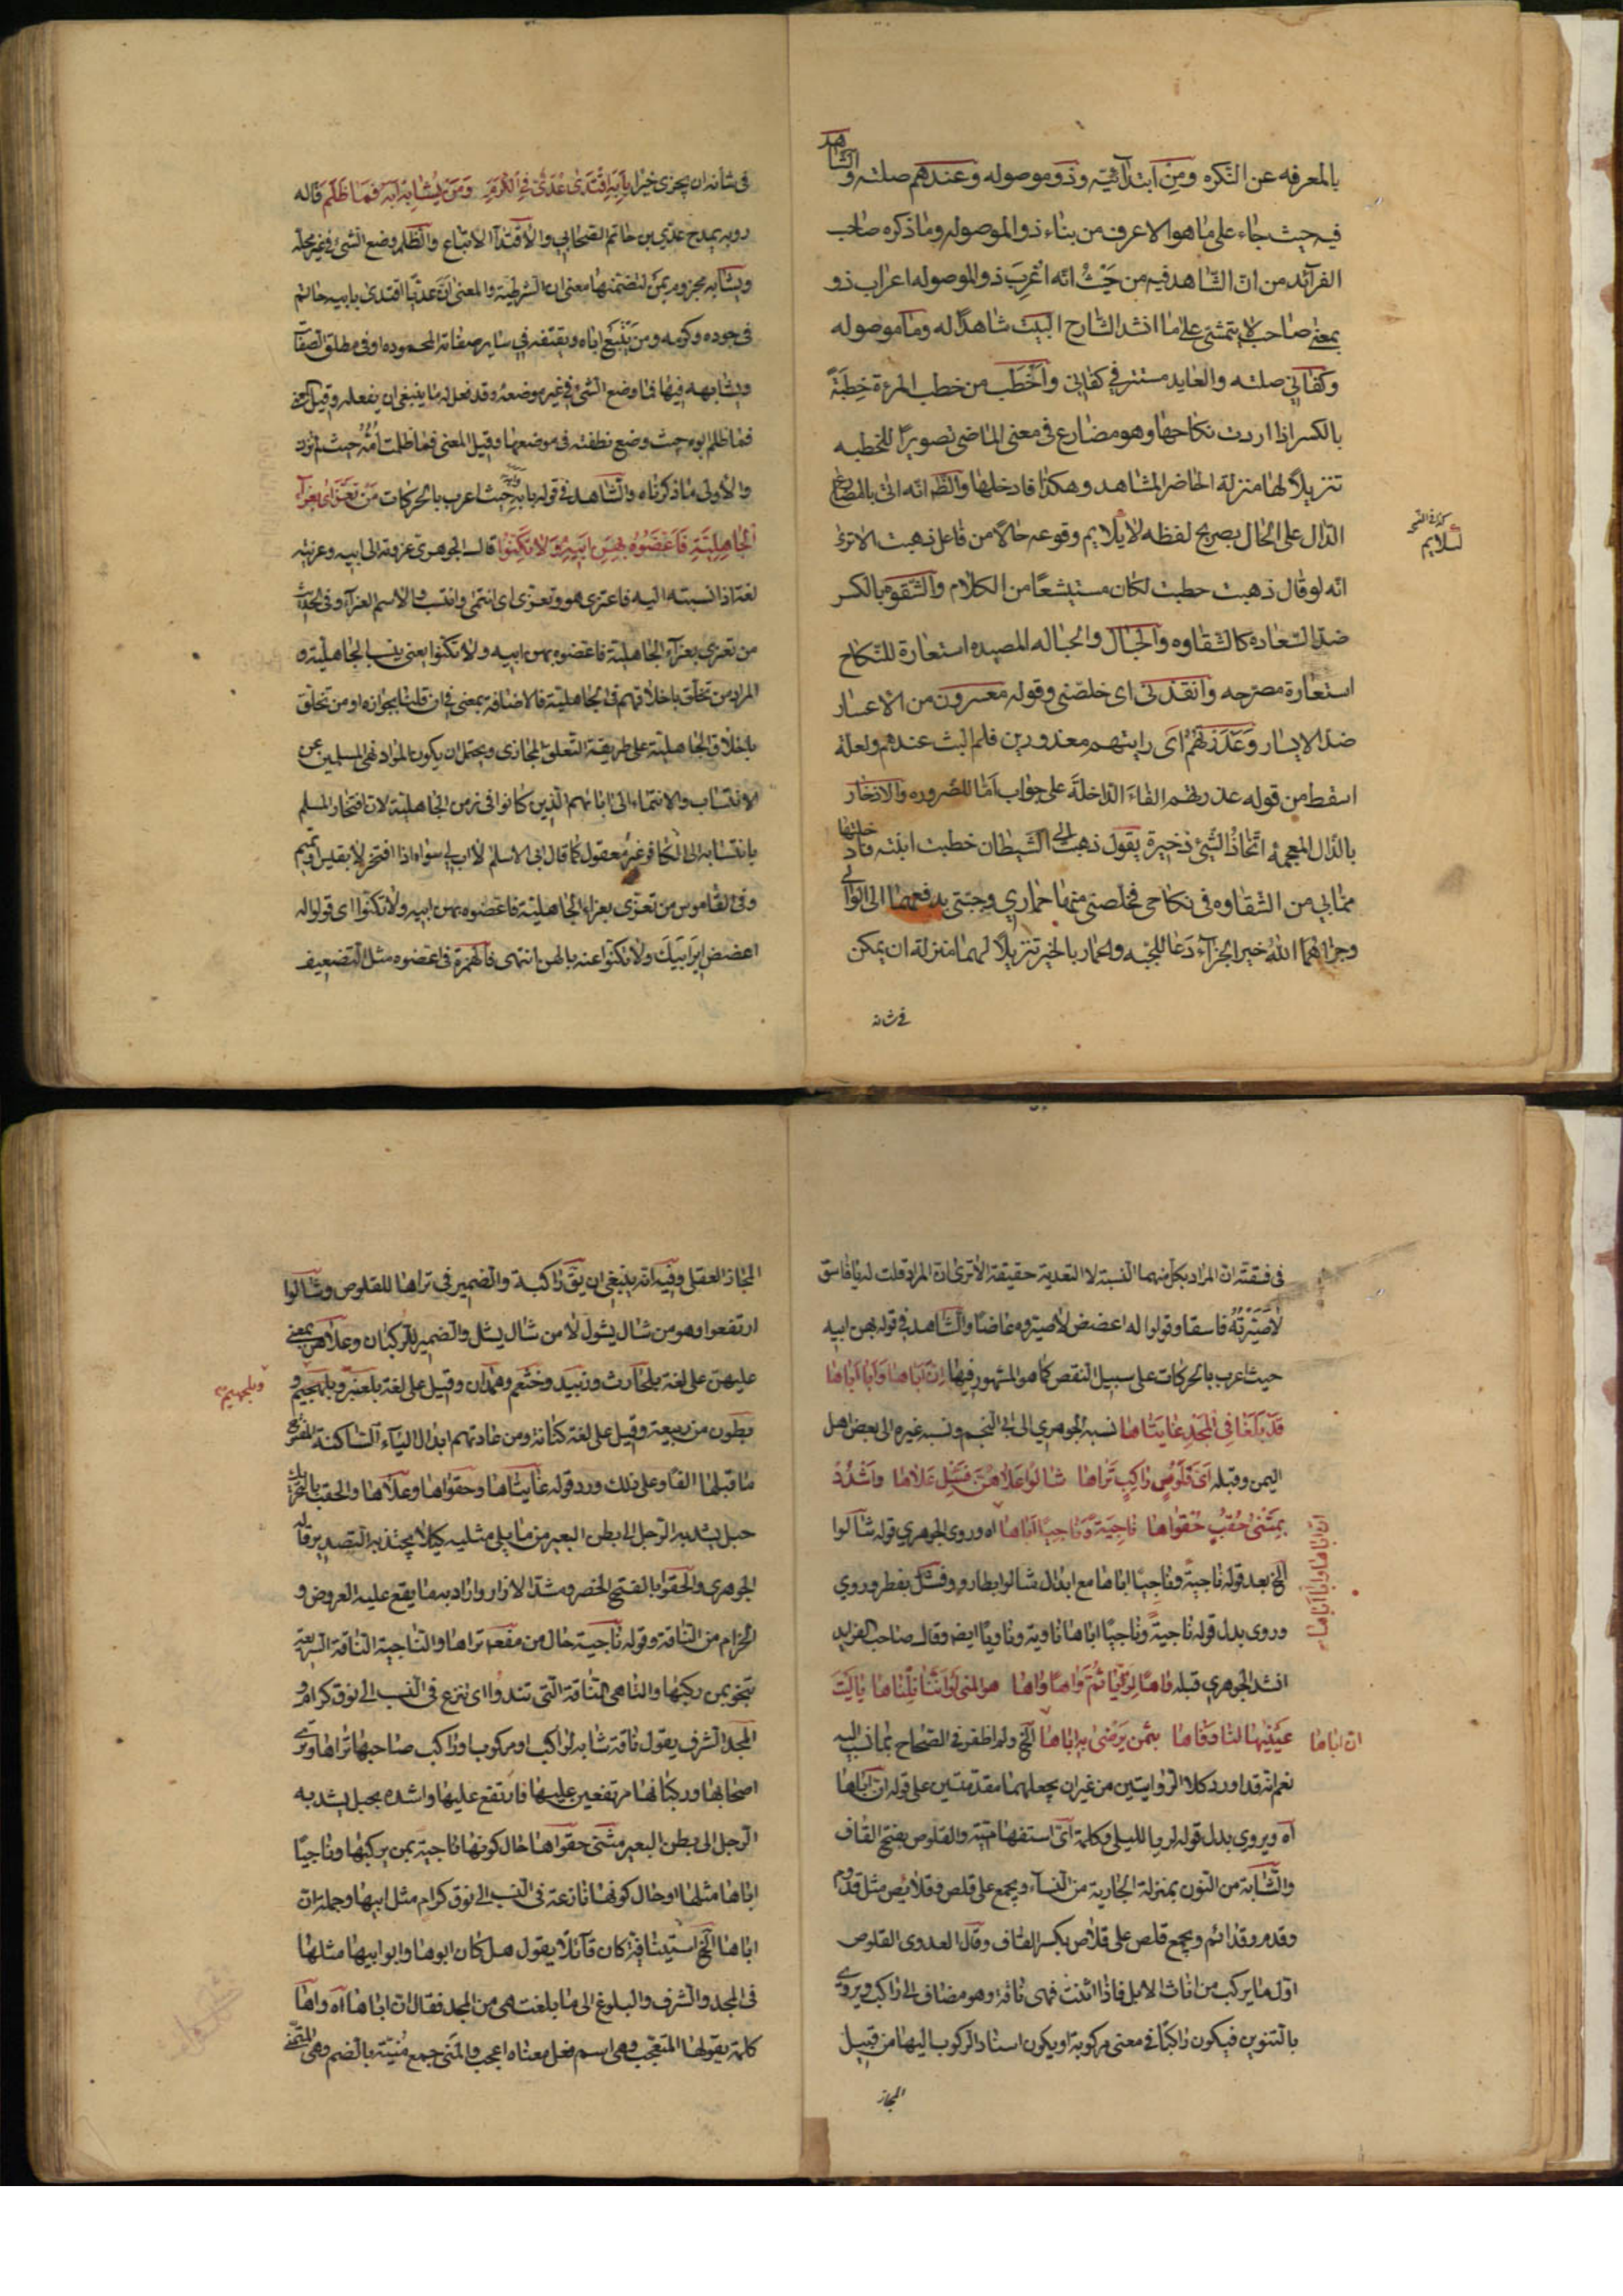 بالمعرفه عن النكره ومن ابتدآئيه وذو موصوله وعندهم صلته والشاهد
فيه حيث جاء على ما هو الاعرف من بناء ذو الموصوله وما ذكره صاحب
الفرآئد من ان الشاهد فيه من حيث انه اعرب ذو الموصوله اعراب ذو
بمعنى صاحب لا يتمشى على ما انشد الشارح البيت شاهدًا له وما موصوله
وكفاني صلته والعايد مستتر في كفاني واخطب من خطب المرءة خِطبَةً
بالكسر اذا اردت نكاحها وهو مضارع في معنى الماضي تصويرًا للخطبه
تنزيلاً لها منزلة الحاضر المشاهد وهكذا فادخلها والظ انه اتى بالمضارع
الدال على الحال بصريح لفظه لا يلايم وقوعه حالاً من فاعل ذهبت الا ترى
انه لو قال ذهبت خطبت لكان مستبشعًا من الكلام والشقوه بالكسر
ضد السعاده كالشقاوه والحبال والحباله المصيده استعارة للنكاح
استعارة مصرحه وانقذني اى خلصني وقوله معسرون من الاعسار
ضد الايسار وعذرتهم اى رايتهم معذورين فلم البث عندهم ولعله
اسقط من قوله عذرتهم الفاء الداخلة على جواب اما للضروره والادخار
بالدال المعجمه اتخاذ الشئ ذخيرة يقول ذهبت الى الشيطان خطبت ابنته فادخلها
مما بي من الشقاوه في نكاحي فخلصني منها حماري وجبتي بدفعهما الى الوالي
وجزاهما الله خير الجزآء دعا للجبه والحمار بالخير تنزيلاً لهما منزلة ان يمكن
في شانه
في شانه ان يجزى خيرا بابه اقتدى عدى في الكرم ومن يشابه ابه فما ظلم قاله
روبه يمدح عدي بن حاتم الصحابي والاقتدآ الاتباع والظلم وضع الشئ في غير محله
ويشابه مجزوم بمن لتضمنها معنى ان الشرطية والمعنى ان عديا اقتدى بابيه حاتم
في جوده وكرمه ومن يتبع اباه ويقتفه في ساير صفاته المحموده او في مطلق الصفات
ويشابهه فيها فما وضع الشئ في غير موضعه وقد فعل له ما ينبغي ان يفعله وقيل المعنى
فما ظلم ابوه حيث وضع نطفته في موضعها وقيل المعنى فما ظلمت امه حيث لم تزن
والاولى ما ذكرناه والشاهد في قوله بابه حيث اعرب بالحركات من تعزى بعزآء
الجاهلية فاعضوه بهن ابيه ولا تكنوا قال الجوهري عزوته الى ابيه وعزيته
لغة اذا نسبته اليه فاعتزى هو وتعزى اى انتمى وانتسب والاسم العزآء وفي الحديث
من تعزى بعزآء الجاهلية فاعضوه بهن ابيه ولا تكنوا يعني بنسب الجاهلية و
المراد من تخلق باخلاقهم في الجاهلية فالاضافة بمعنى في ان قلت بجوازه او من تخلق
باخلاق الجاهلية على طريقة التعلق المجازى ويحتمل ان يكون المراد نهى المسلمين عن
الانتساب والانتماء الى ابائهم الذين كانوا في زمن الجاهلية لان افتخار المسلم
بانتسابه الى الكافر غير معقول كما قال ابى الاسلم لا اب لي سواه اذا افتخر لا بقيس او تميم
وفي القاموس من تعزى بعزآء الجاهلية فاعضوه بهن ابيه ولا تكنوا اى قولوا له
اعضض اير ابيك ولا تكنوا عنه بالهن انتهى فالهمزة في اعضوه مثل التضعيف
في فسقته ان المراد بكل منهما النسبة لا التعدية حقيقة الا ترى ان المراد قلت له يا فاسق
لا صيرته فاسقا وقولوا له اعضض لا صيروه عاضا والشاهد في قوله بهن ابيه
حيث اعرب بالحركات على سبيل النقص كما هو المشهور فيها ان اباها وابا اباها
قد بلغا في المجد غايتاها نسبه الجوهري الى ابي النجم ونسبه غيره الى بعض اهل
اليمن وقبله اى قلوص راكب تراها شالوا علاهن فشل علاها واشدد
بمثنى حقب حقواها ناجية وناجيًا اباها اه وروى الجوهري قوله شالوا
الخ بعد قوله ناجية وناجيًا اباها مع ابدال شالوا بطاروا وفشل بفطر وروي
وروى بدل قوله ناجيةً وناجيًا اباها ناوية وناويًا ايض وقال صاحب الفرايد
انشد الجوهري قبله واها لريا ثم واها واها هو المنى لو اننا نلناها ياليت
ان اباها
عينيها لنا وفاها بثمن يرضى به اباها الخ ولم اظفر في الصحاح بما نسب اليه
نعم انه قد اورد كلا الروايتين من غير ان يجعلهما مقدمتين على قوله ان اباها
آه ويروى بدل قوله لريا لليلى وكلمة اى استفهامية والقلوص بفتح القاف
والشابة من النوق بمنزلة الجارية من النسآء ويجمع على قلص وقلائص مثل قدوم
وقدم وقدائم ويجمع قلص على قلاص بكسر القاف وقال العدوى القلوص
اول ما يركب من اناث الابل فاذا اثنت فهى ناقه وهو مضاف الى راكب ويروى
بالتنوين فيكون راكبًا في معنى مركوبة او يكون اسناد الركوب اليها من قبيل
المجاز
المجاز العقلى وفيه انه ينبغي ان يق راكبة والضمير في تراها للقلوص وشالوا
ارتفعوا وهو من شال يشول لا من شال يشل والضمير للركبان وعلاهن بمعنى
عليهن على لغة بلحارث وزبيد وخثعم وهمدان وقيل على لغة بلعنبر وبلهجيم و
وبلهجيم
بطون من ربيعة وقيل على لغة كنانة ومن عادتهم ابدال اليآء الساكنة المفتوح
ما قبلها الفًا وعلى ذلك ورد قوله غايتاها وحقواها وعلاها والحقب بالتحريك
حبل يشد به الرحل الى بطن البعير مما يلى مثليه كيلا يجتذبه التصدير قاله
الجوهري والحقو بالفتح الخصر ومشد الازار واراد به ما يقع عليه العروض و
الحزام من الناقة وقوله ناجية حال من مفعول تراها والناجية الناقة السريعة
تنجو بمن ركبها والناهى الناقة التى تندوا اى تنزع في النسب الى نوق كرام و
المجد الشرف يقول ناقة شابه لراكب او مركوب اوراكب صاحبها تراها وترى
اصحابها وركبانها مرتفعين عليها فارتفع عليها واشدد بحبل يشد به
الرحل الى بطن البعير مثنى حقواها حال كونها ناجية بمن يركبها وناجيًا
اباها مثلها او حال كونها نازعة في النسب الى نوق كرام مثل ابيها وجملة ان
اباها الخ استينافية كان قآئلًا يقول هل كان ابوها وابو ابيها مثلها
في المجد والشرف والبلوغ الى ما بلغت هى من المجد فقال ان اباها اه واها
كلمة يقولها المتعجب وهى اسم فعل معناه اعجب والمنى جمع مُنيَة بالضم وهى التمني